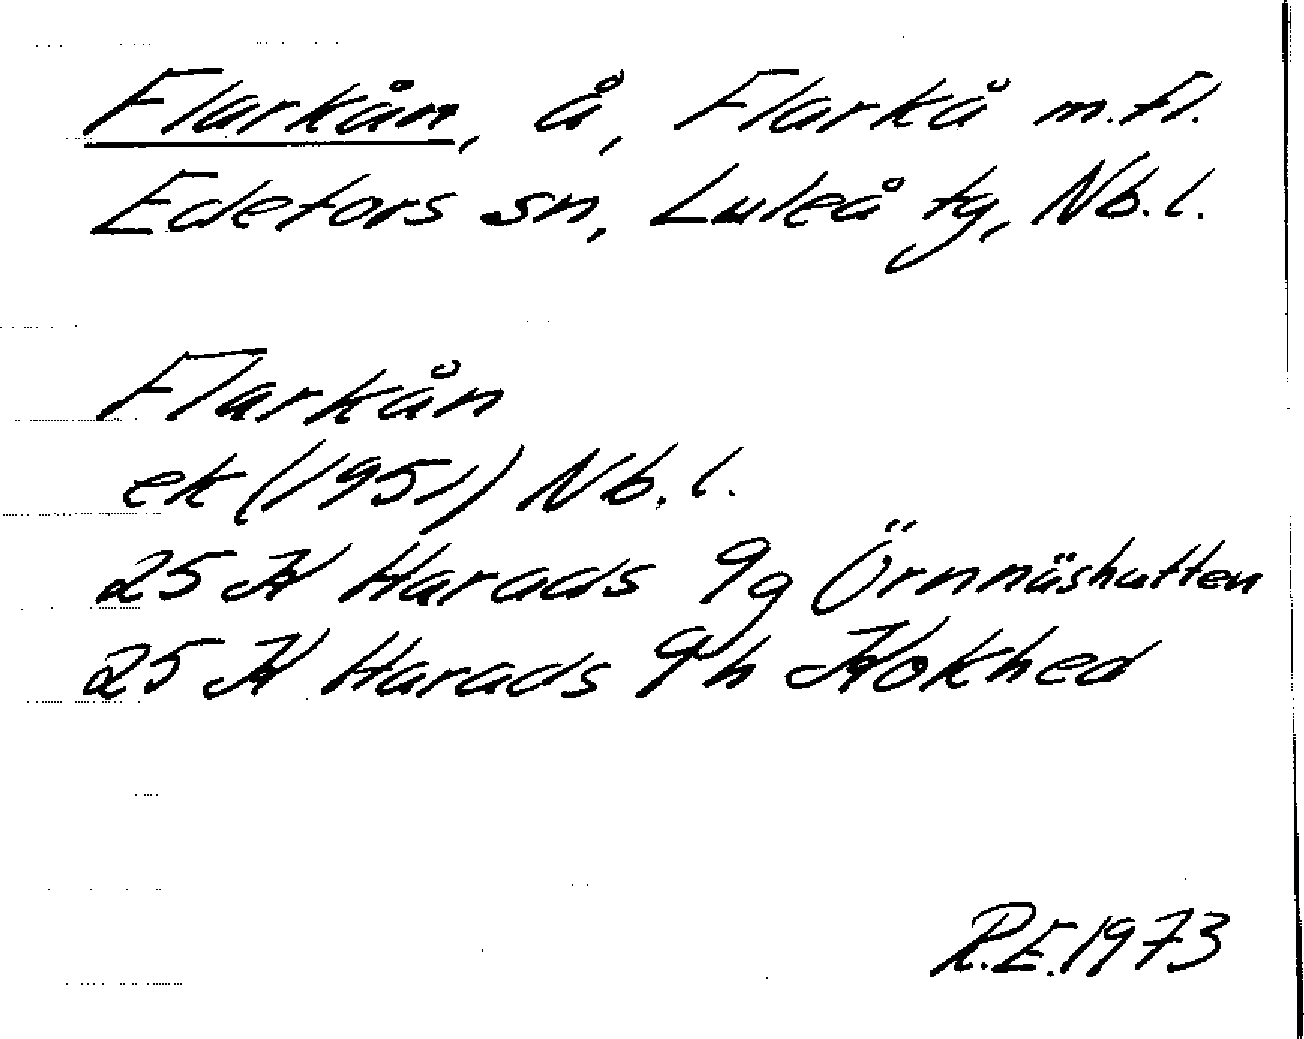 Flarkån, å, Flarkå m.fl.
Edefors sn, Luleå tg, Nb.l.
Flarkån
ek (1951) Nb.l.
25 K Harads 9g Örnnäshatten
25 K Harads 9h Kokhed
R.E. 1973